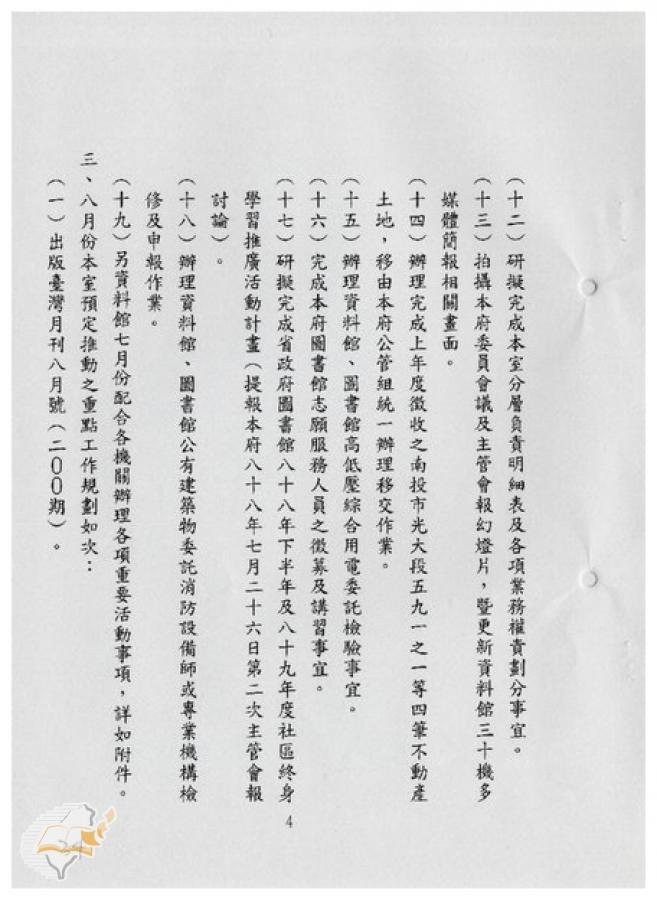 （十二）研擬完成本室分層負責明細表及各項業務權責劃分事宜。
（十三）拍攝本府委員會議及主管會報幻燈片，暨更新資料館三十機多
媒體簡報相關畫面。
（十四）辦理完成上年度徵收之南投市光大段五九一之一等四筆不動產
土地，移由本府公管組統一辦理移交作業。
（十五）辦理資料館、圖書館高低壓綜合用電委託檢驗事宜。
（十六）完成本府圖書館志願服務人員之徵募及講習事宜。
（十七）研擬完成省政府圖書館八十八年下半年及八十九年度社區終身
學習推廣活動計畫（提報本府八十八年七月二十六日第二次主管會報
討論）。
（十八）辦理資料館、圖書館公有建築物委託消防設備師或專業機構檢
修及申報作業。
（十九）另資料館七月份配合各機關辦理各項重要活動事項，詳如附件。
三、八月份本室預定推動之重點工作規劃如次：
（一）出版臺灣月刊八月號（二００期）。
4